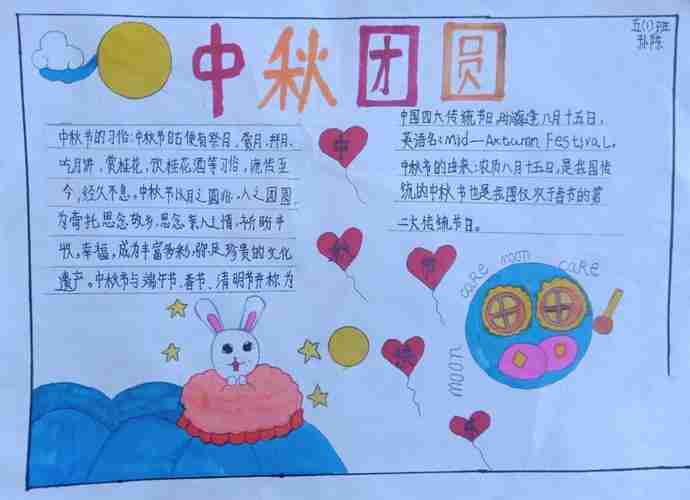 五(1)班
孙陈
中秋团圆
中秋节的习俗:中秋节自古便有祭月、赏月、拜月、
吃月饼、赏桂花、饮桂花酒等习俗,流传至
今,经久不息。中秋节以月之圆 人之团圆,
为寄托思念故乡,思念亲人之情,祈盼丰
收、幸福,成为丰富多彩,弥足珍贵的文化
遗产。中秋节与端午节、春节、清明节并称为
中国四大传统节日, 八月十五日,
英语名:Mid—Axtumn Festival。
中秋节的由来:农历八月十五日,是我国传
统的中秋节也是我国仅次于春节的第
二大传统节日。
中
秋
节
快
乐
cake moon cake
moon